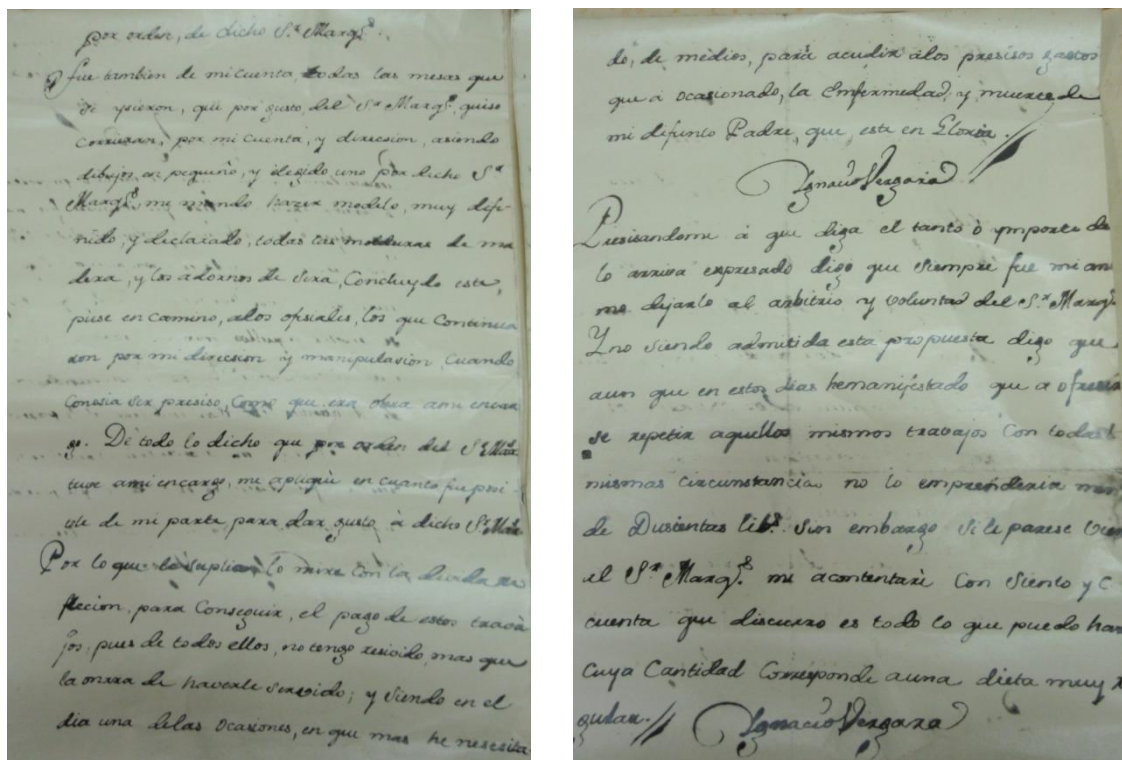 por orden, de dicho S.r Marq.s
fue tambien de mi cuenta, todas las mesas que
se ysieron, que por gusto, del S.r Marq.s quiso
corriesen, por mi cuenta, y direcsion, asiendo
dibujos, en pequeño, y elegido uno por dicho S.r
Marq.s me mando hazer modelo, muy difi-
nido, y declarado, todas las molduras de ma
dera, y los adornos de sera, Concluydo este,
puse en camino, alos ofisiales, los que Continua
ron por mi direcsion y manipulasion, Cuando
Conosia ser presiso, Como que era obra ami encar
go. De todo lo dicho que por orden del S.r Mar
tuve ami encargo, me apliquè en cuanto fue posi-
ble de mi parte para dar gusto, à dicho S.r Mar
Por lo que le suplico, lo mire con la devida re
flecion, para Conseguir, el pago de estos trava
jos, pues de todos ellos, no tengo resivido, mas que
la onrra de haverle servido; y siendo en el
dia una delas ocasiones, en que mas he nesesita
do, de medios, para acudir alos presisos gastos
que à ocasionado, la Emfermedad, y muerte, de
mi difunto Padre, que, este en Gloria.
Ignacio Vergara
Presisandome à que diga el tanto ò ymporte de
lo arriva expresado digo que siempre fue mi ani
mo dejarlo al arbitrio y voluntad del S.r Marq.s
Y no siendo admitida esta propuesta digo que
aun que en estos dias hemanifestado que a ofresia
se repetir aquellos mismos travajos Con todas l
mismas circunstancias no lo emprenderia men
de Dusientas lib.s Sin embargo Si le parese
el S.r Marq.s me acontentarè Con Siento y C
cuenta que discurro es todo lo que puedo
Cuya Cantidad Corresponde auna dieta muy r
gular.
Ignacio Vergara